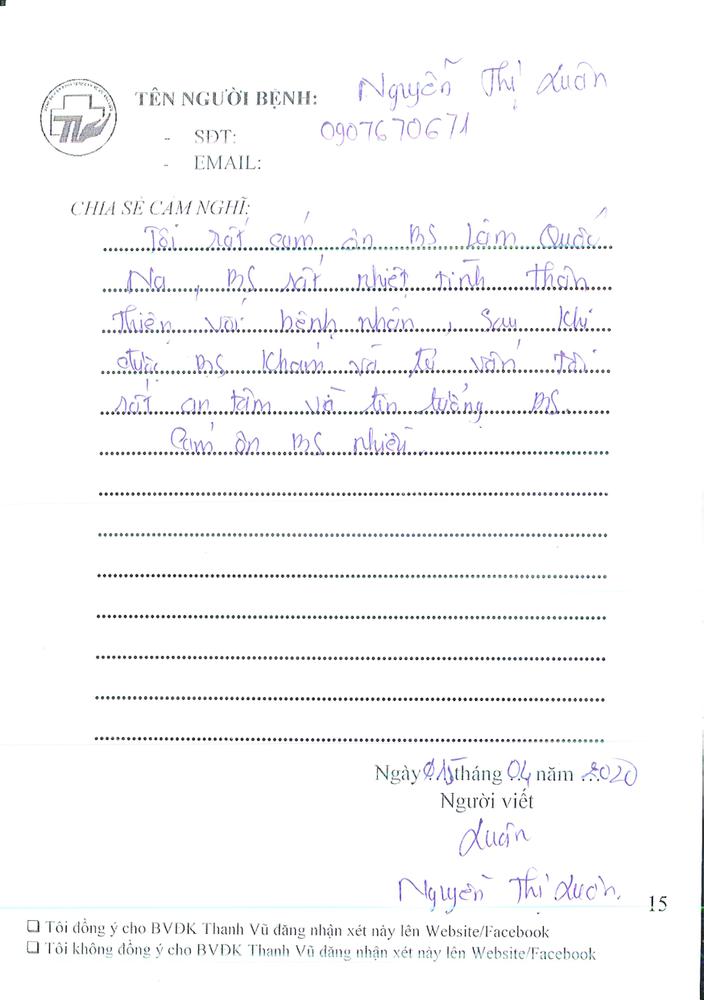 TÊN NGƯỜI BỆNH: Nguyễn Thị Xuân
- SĐT: 0907670671
- EMAIL:
CHIA SẺ CẢM NGHĨ:
Tôi rất cám ơn BS Lâm Quốc
Na, BS rất nhiệt tình thân
thiện với bệnh nhân, sau khi
được BS khám và tư vấn tôi
rất an tâm và tin tưởng BS.
Cám ơn BS nhiều.
Ngày 15 tháng 04 năm 2020
Người viết
Xuân
Nguyễn Thị Xuân.
15
☐ Tôi đồng ý cho BVĐK Thanh Vũ đăng nhận xét này lên Website/Facebook
☐ Tôi không đồng ý cho BVĐK Thanh Vũ đăng nhận xét này lên Website/Facebook